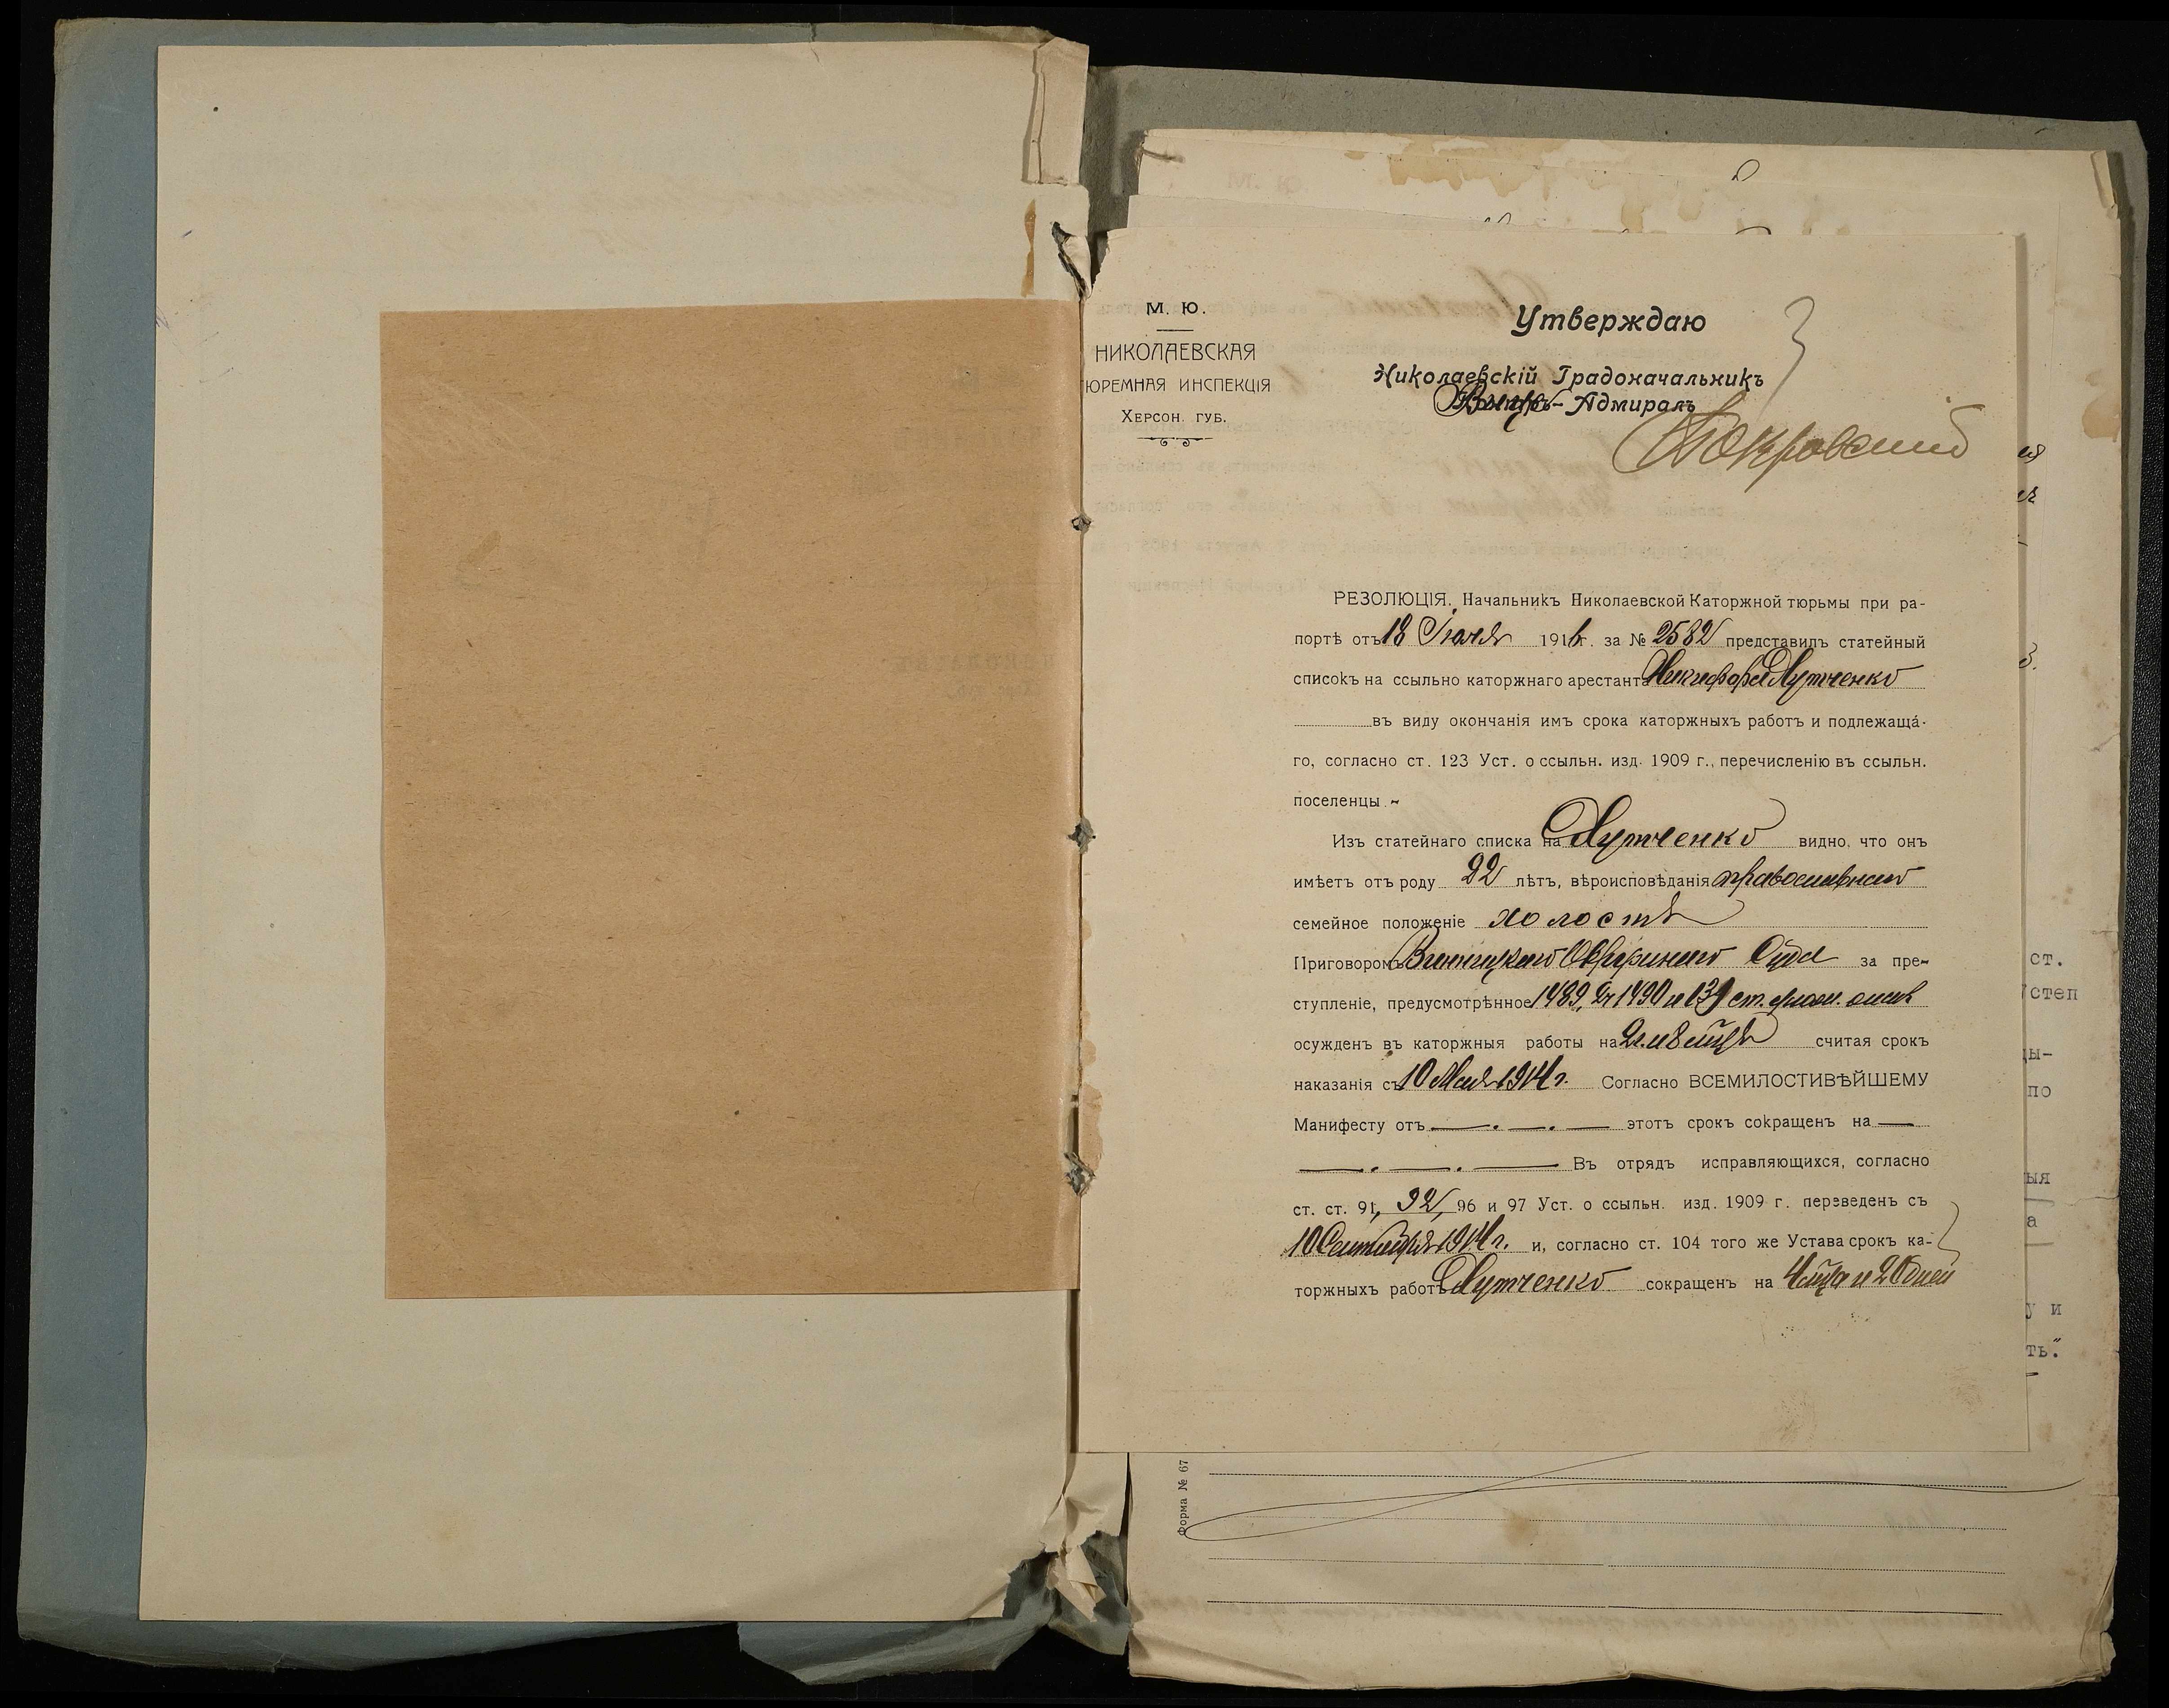 М. Ю.
НИКОЛАЕВСКАЯ
ЮРЕМНАЯ ИНСПЕКЦІЯ
ХЕРСОН. ГУБ.
Утверждаю
Николаевскій Градоначальникъ
Вице-Адмиралъ
Покровский
РЕЗОЛЮЦІЯ. Начальникъ Николаевской Каторжной тюрьмы при ра-
портѣ отъ 18 Іюля 1916 г. за № 2582 представилъ статейный
списокъ на ссыльно каторжнаго арестанта Никифора Лутченко
въ виду окончанія имъ срока каторжныхъ работъ и подлежаща-
го, согласно ст. 123 Уст. о ссыльн. изд. 1909 г., перечисленію въ ссыльн.
поселенцы.
Изъ статейнаго списка на Лутченко видно, что онъ
имѣетъ отъ роду 22 лѣтъ, вѣроисповѣданія православнаго
семейное положеніе холостъ
Приговоромъ Винницкаго Окружнаго Суда за пре-
ступленіе, предусмотрѣнное 1489, 2ч 1490 и 139 ст. улож. о нак
осужденъ въ каторжныя работы на 2 г. и 8 мѣсц. считая срокъ
наказанія съ 10 Мая 1914 г. Согласно ВСЕМИЛОСТИВѢЙШЕМУ
Манифесту отъ —.—.— этотъ срокъ сокращенъ на —
—.—.— Въ отрядъ исправляющихся, согласно
ст. ст. 91, 92, 96 и 97 Уст. о ссыльн. изд. 1909 г. переведенъ съ
10 Сентября 1914 г. и, согласно ст. 104 того же Устава срокъ ка-
торжныхъ работъ Лутченко сокращенъ на 4 мѣца и 20 дней
ст.
степ
ды-
по
ыя
а
у и
ть".
Форма № 67